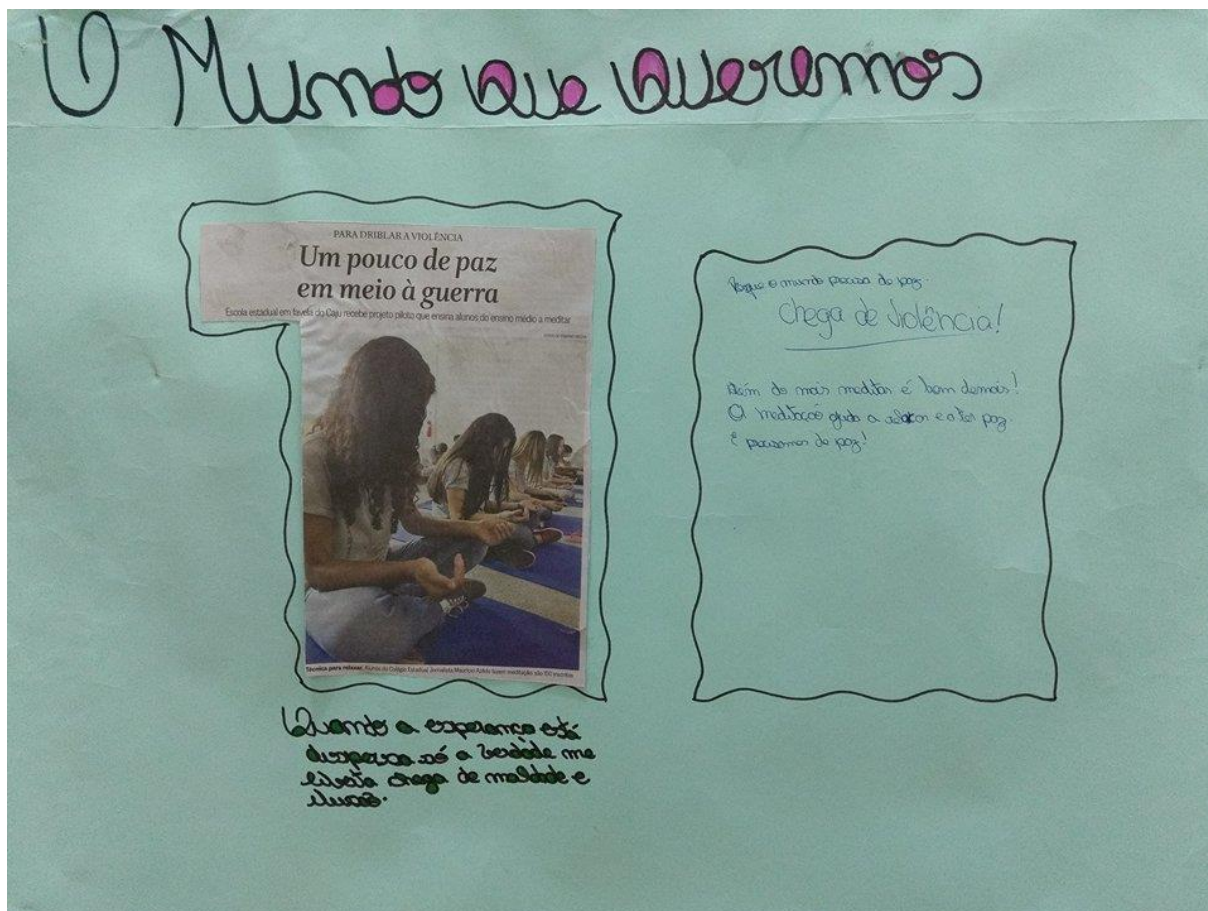 O Mundo que queremos
PARA DRIBLAR A VIOLÊNCIA
Um pouco de paz
em meio à guerra
Escola estadual em favela do Caju recebe projeto piloto que ensina alunos do ensino médio a meditar
Técnica para relaxar. Alunos do Colégio Estadual Jornalista Maurício Azêdo fazem meditação: são 150 inscritos
Quando a esperança está
dispersa só a verdade me
liberta chega de maldade e
ilusão.
Porque o mundo precisa de paz.
chega de violência!
Além do mais meditar é bom demais!
A meditação ajuda a relaxar e a ter paz.
E precisamos de paz!